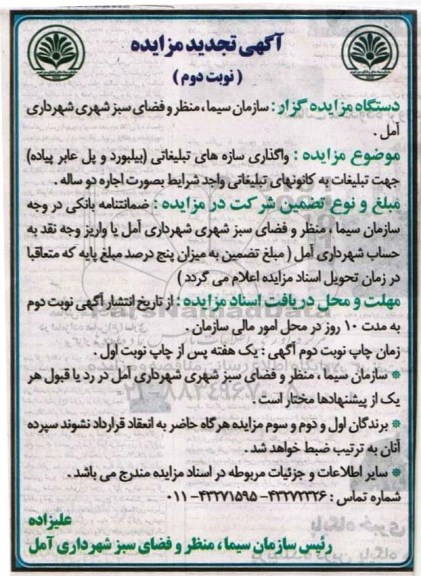 آگهی تجدید مزایده
( نوبت دوم )
دستگاه مزایده گزار : سازمان سیما ، منظر و فضای سبز شهری شهرداری
آمل .
موضوع مزایده : واگذاری سازه های تبلیغاتی (بیلبورد و پل عابر پیاده)
جهت تبلیغات به کانونهای تبلیغاتی واجد شرایط بصورت اجاره دو ساله .
مبلغ و نوع تضمین شرکت در مزایده : ضمانتنامه بانکی در وجه
سازمان سیما ، منظر و فضای سبز شهری شهرداری آمل یا واریز وجه نقد به
حساب شهرداری آمل ( مبلغ تضمین به میزان پنج درصد مبلغ پایه که متعاقبا
در زمان تحویل اسناد مزایده اعلام می گردد )
مهلت و محل دریافت اسناد مزایده : از تاریخ انتشار آگهی نوبت دوم
به مدت ۱۰ روز در محل امور مالی سازمان .
زمان چاپ نوبت دوم آگهی : یک هفته پس از چاپ نوبت اول .
* سازمان سیما ، منظر و فضای سبز شهری شهرداری آمل در رد یا قبول هر
یک از پیشنهادها مختار است .
* برندگان اول و دوم و سوم مزایده هرگاه حاضر به انعقاد قرارداد نشوند سپرده
آنان به ترتیب ضبط خواهد شد .
* سایر اطلاعات و جزئیات مربوطه در اسناد مزایده مندرج می باشد .
شماره تماس : ۴۳۲۷۲۳۲۶- ۴۳۲۷۱۵۹۵-۰۱۱
علیزاده
رئیس سازمان سیما ، منظر و فضای سبز شهرداری آمل